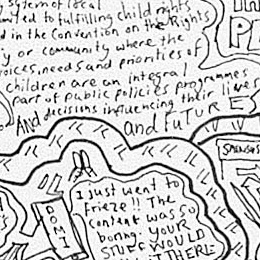 System of local
to fulfilling child rights
d in the Convention on the Rights
y or community where the
voices, needs and priorities of
children are an integral
part of public policies programmes
And decisions influencing their lives
and FUTURE
I just went to
Frieze!! The
content was so
boring. YOUR
STUFF WOULD
THERE
DOMI